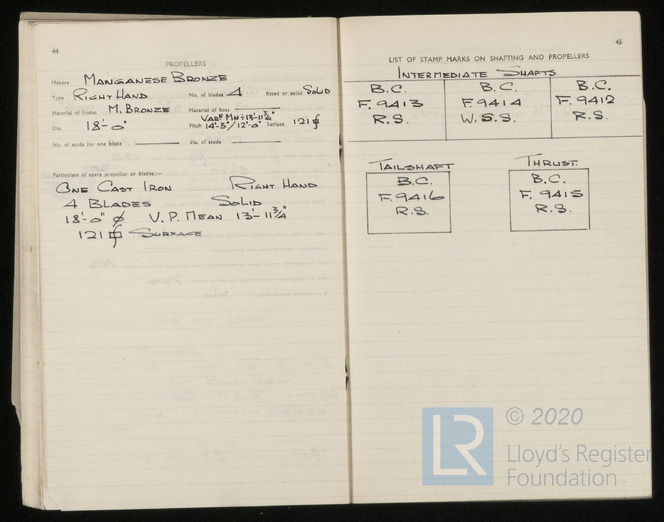 44
PROPELLERS
Makers MANGANESE BRONZE
Type RIGHT HAND No. of blades 4 fitted or solid SOLID
Material of blades M. BRONZE Material of boss
Dia. 18'-0" Pitch VARS MN = 13'-11¾" 14'-3"/12'-0" Surface 121
No. of studs for one blade dia. of studs
Particulars of spare propeller or blades:—
ONE CAST IRON RIGHT HAND
4 BLADES SOLID
18'-0" ϕ V.P. MEAN 13'-11¾"
121 SURFACE
45
LIST OF STAMP MARKS ON SHAFTING AND PROPELLERS
INTERMEDIATE SHAFTS
B.C. B.C. B.C.
F. 9413 F. 9414 F. 9412
R.S. W.S.S. R.S.
TAILSHAFT THRUST
B.C. B.C.
F. 9416 F. 9415
R.S. R.S.
LR © 2020
Lloyd's Register
Foundation